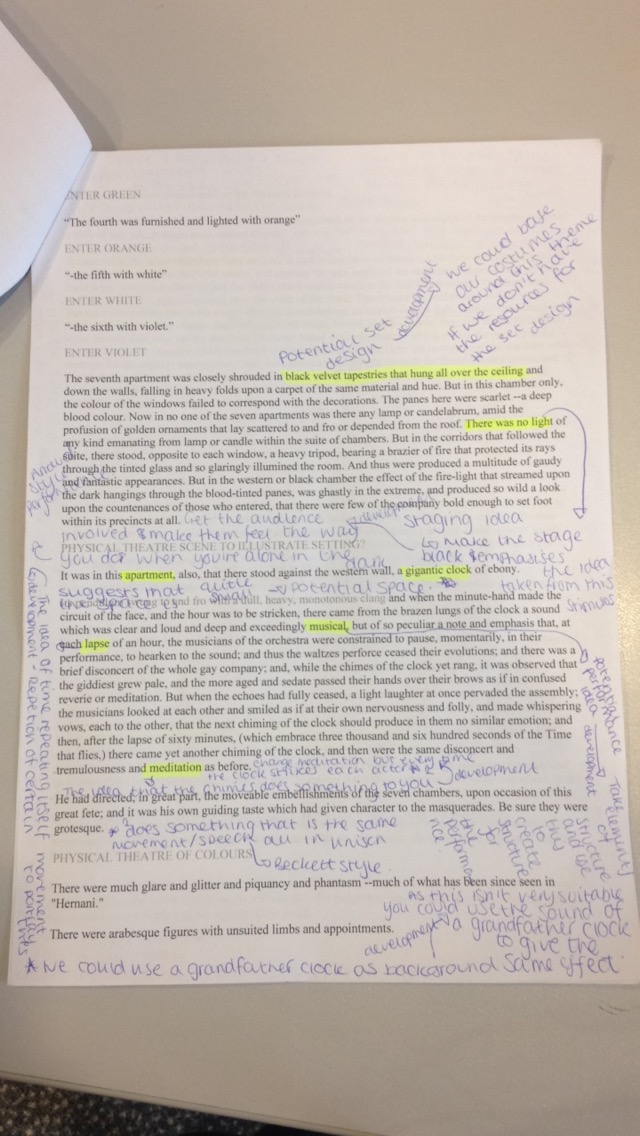 ENTER GREEN
“The fourth was furnished and lighted with orange”
ENTER ORANGE
“-the fifth with white”
ENTER WHITE
“-the sixth with violet.”
ENTER VIOLET
Potential set
design
development
we could base
our costumes
around this theme
If we don't have
the resources for
the set design
The seventh apartment was closely shrouded in black velvet tapestries that hung all over the ceiling and
down the walls, falling in heavy folds upon a carpet of the same material and hue. But in this chamber only,
the colour of the windows failed to correspond with the decorations. The panes here were scarlet --a deep
blood colour. Now in no one of the seven apartments was there any lamp or candelabrum, amid the
profusion of golden ornaments that lay scattered to and fro or depended from the roof. There was no light of
any kind emanating from lamp or candle within the suite of chambers. But in the corridors that followed the
suite, there stood, opposite to each window, a heavy tripod, bearing a brazier of fire that protected its rays
through the tinted glass and so glaringly illumined the room. And thus were produced a multitude of gaudy
and fantastic appearances. But in the western or black chamber the effect of the fire-light that streamed upon
the dark hangings through the blood-tinted panes, was ghastly in the extreme, and produced so wild a look
upon the countenances of those who entered, that there were few of the company bold enough to set foot
within its precincts at all.
Get the audience
involved & make them feel the way
you do when you're alone in the dark
staging idea
make the stage
black & emphasises
the idea
taken from this
stimulus
PHYSICAL THEATRE SCENE TO ILLUSTRATE SETTING?
It was in this apartment, also, that there stood against the western wall, a gigantic clock of ebony.
suggests that quite
small
potential space.
heavy, monotonous clang and when the minute-hand made the
circuit of the face, and the hour was to be stricken, there came from the brazen lungs of the clock a sound
which was clear and loud and deep and exceedingly musical, but of so peculiar a note and emphasis that, at
each lapse of an hour, the musicians of the orchestra were constrained to pause, momentarily, in their
performance, to hearken to the sound; and thus the waltzes perforce ceased their evolutions; and there was a
brief disconcert of the whole gay company; and, while the chimes of the clock yet rang, it was observed that
the giddiest grew pale, and the more aged and sedate passed their hands over their brows as if in confused
reverie or meditation. But when the echoes had fully ceased, a light laughter at once pervaded the assembly;
the musicians looked at each other and smiled as if at their own nervousness and folly, and made whispering
vows, each to the other, that the next chiming of the clock should produce in them no similar emotion; and
then, after the lapse of sixty minutes, (which embrace three thousand and six hundred seconds of the Time
that flies,) there came yet another chiming of the clock, and then were the same disconcert and
tremulousness and meditation as before.
change meditation but every time
the clock strikes each actor
development
The idea that the chimes does something to you
He had directed, in great part, the moveable embellishments of the seven chambers, upon occasion of this
great fete; and it was his own guiding taste which had given character to the masquerades. Be sure they were
grotesque.
does something that is the same
movement/speech all in unison
PHYSICAL THEATRE OF COLOURS
Beckett style.
There were much glare and glitter and piquancy and phantasm --much of what has been since seen in
"Hernani."
There were arabesque figures with unsuited limbs and appointments.
As this isn't very suitable
you could use the sound of
a grandfather clock
to give the
same effect.
development
* we could use a grandfather clock as background
development - Repetion of certain movement
The idea of time repeating itself
Take elements
of
structure
and use
this
to
create
structure
for
the
performance